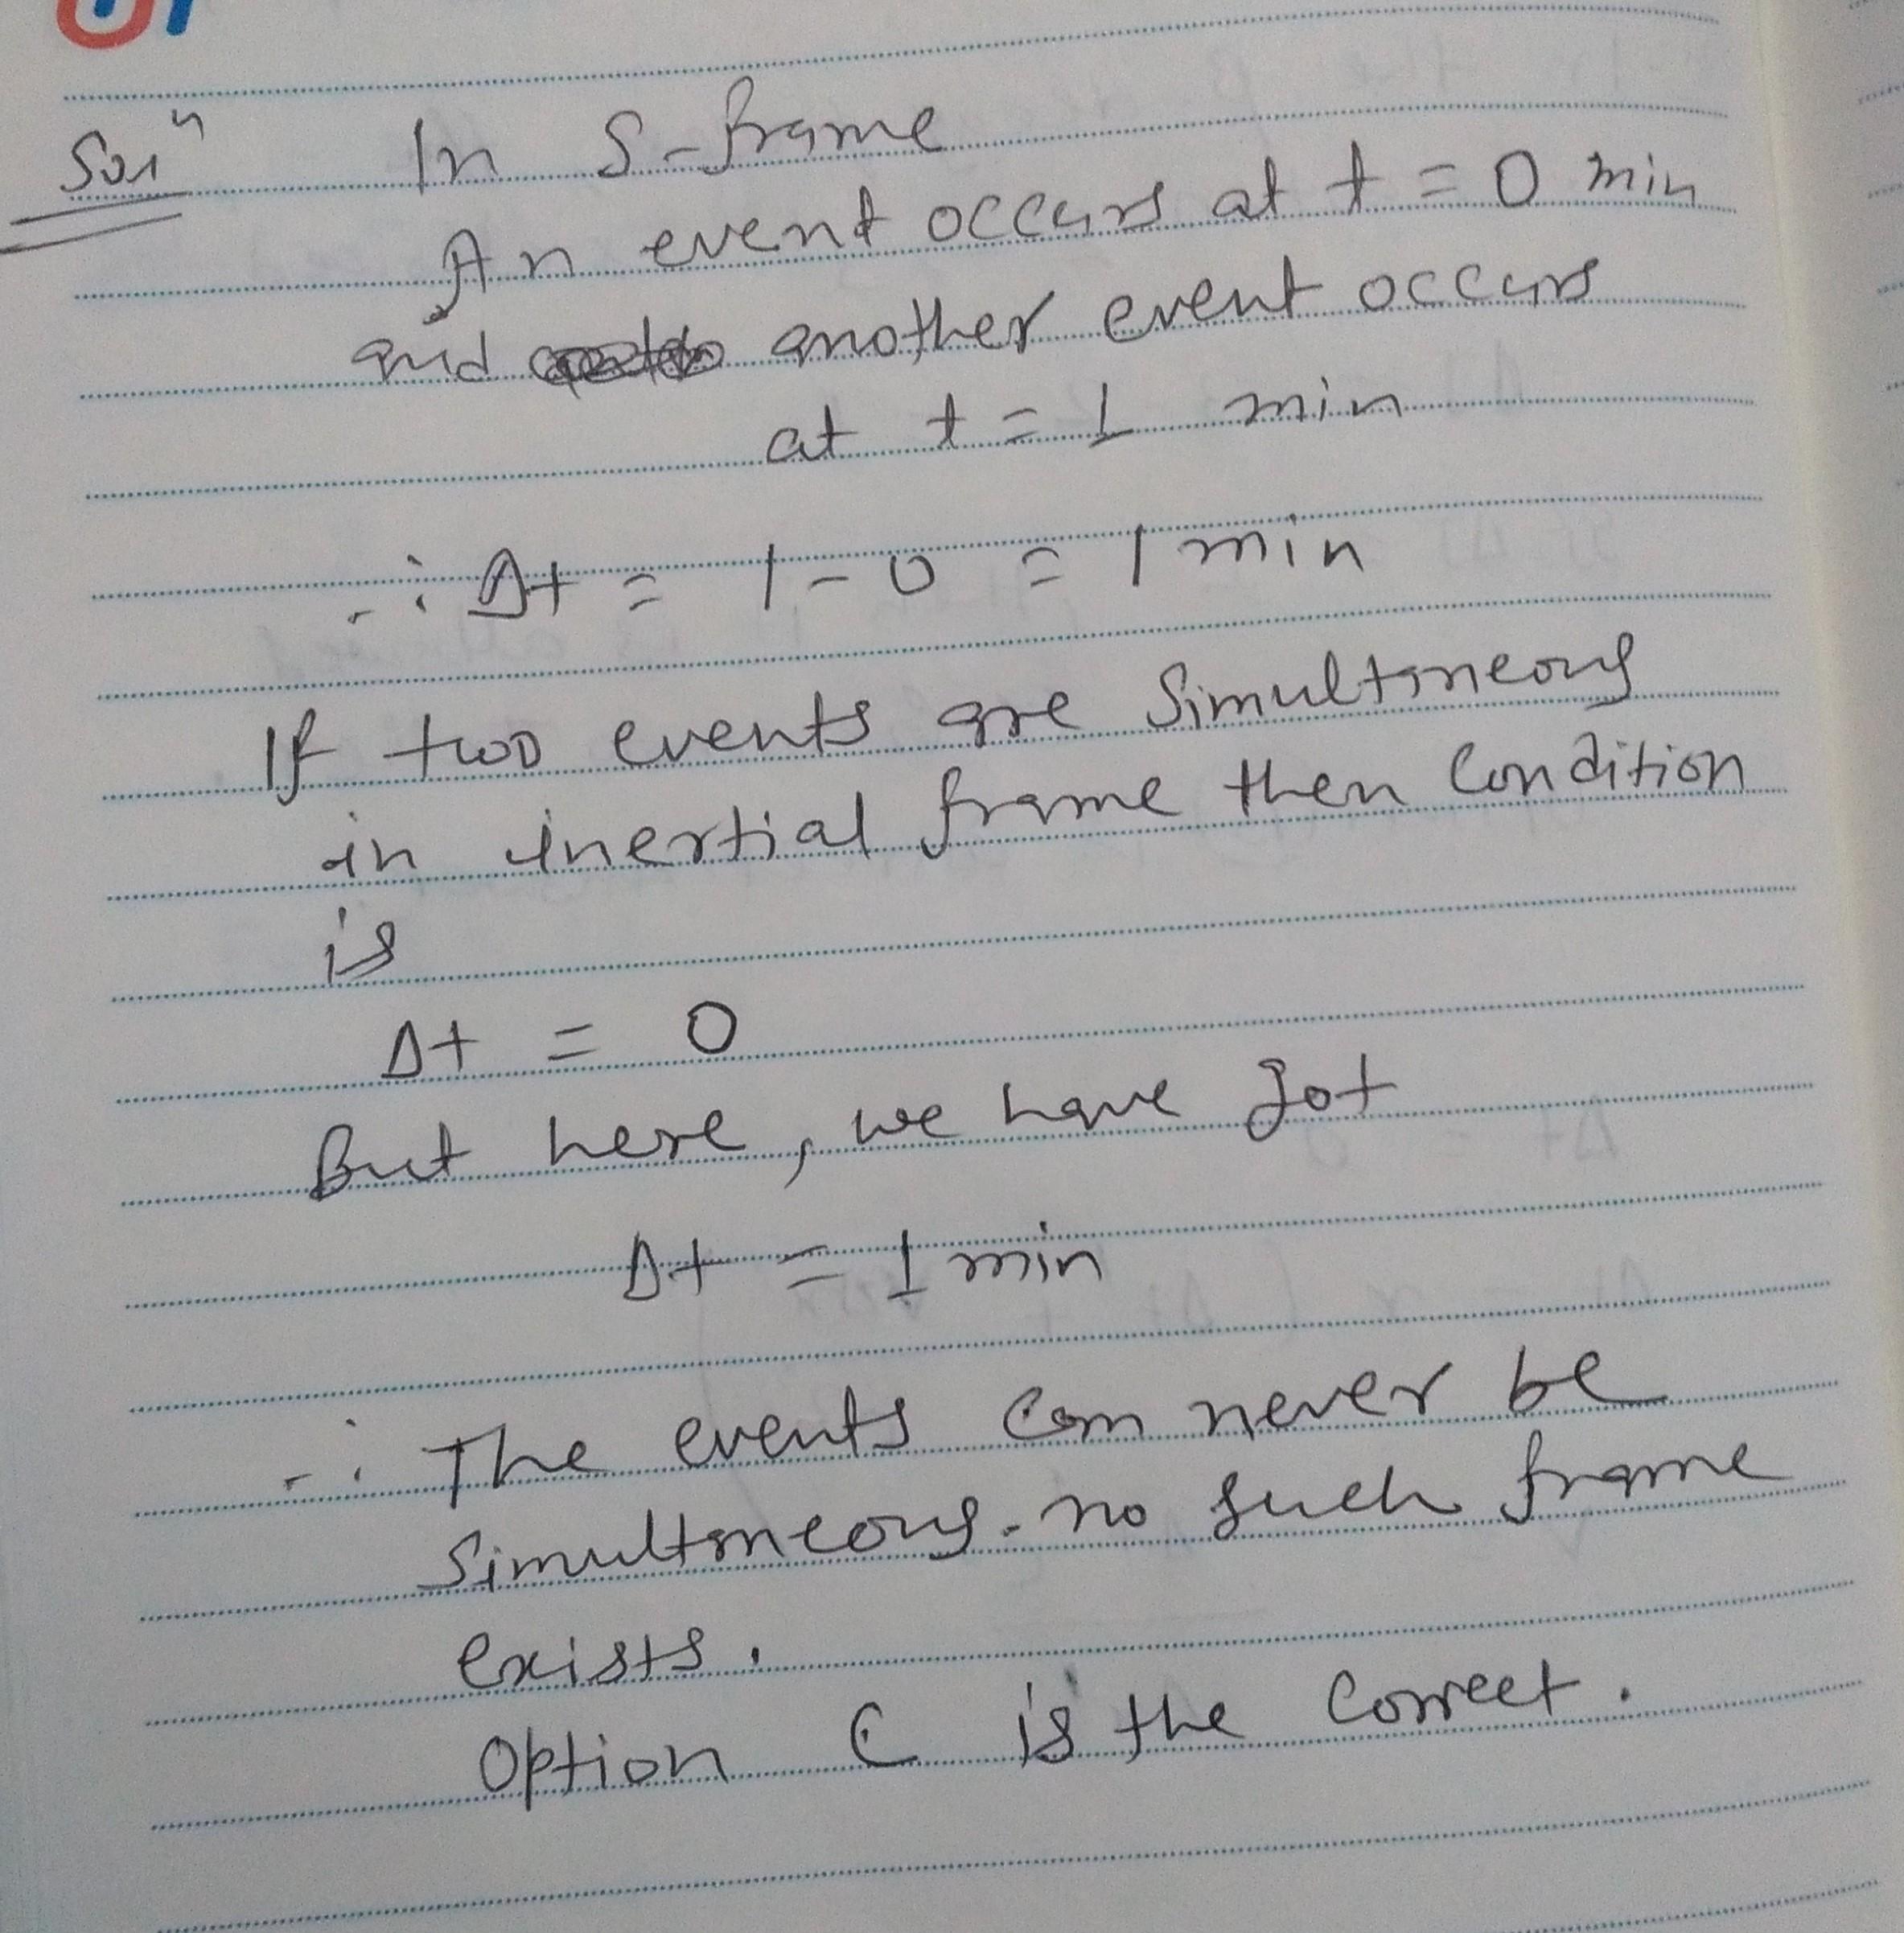 Solⁿ In S-frame
An event occurs at t = 0 min
and another event occurs
at t = 1 min
∴ Δt = 1 - 0 = 1 min
If two events are simultaneous
in inertial frame then condition
is
Δt = 0
But here, we have got
Δt = 1 min
∴ The events can never be
simultaneous. no such frame
exists.
Option C is the correct.